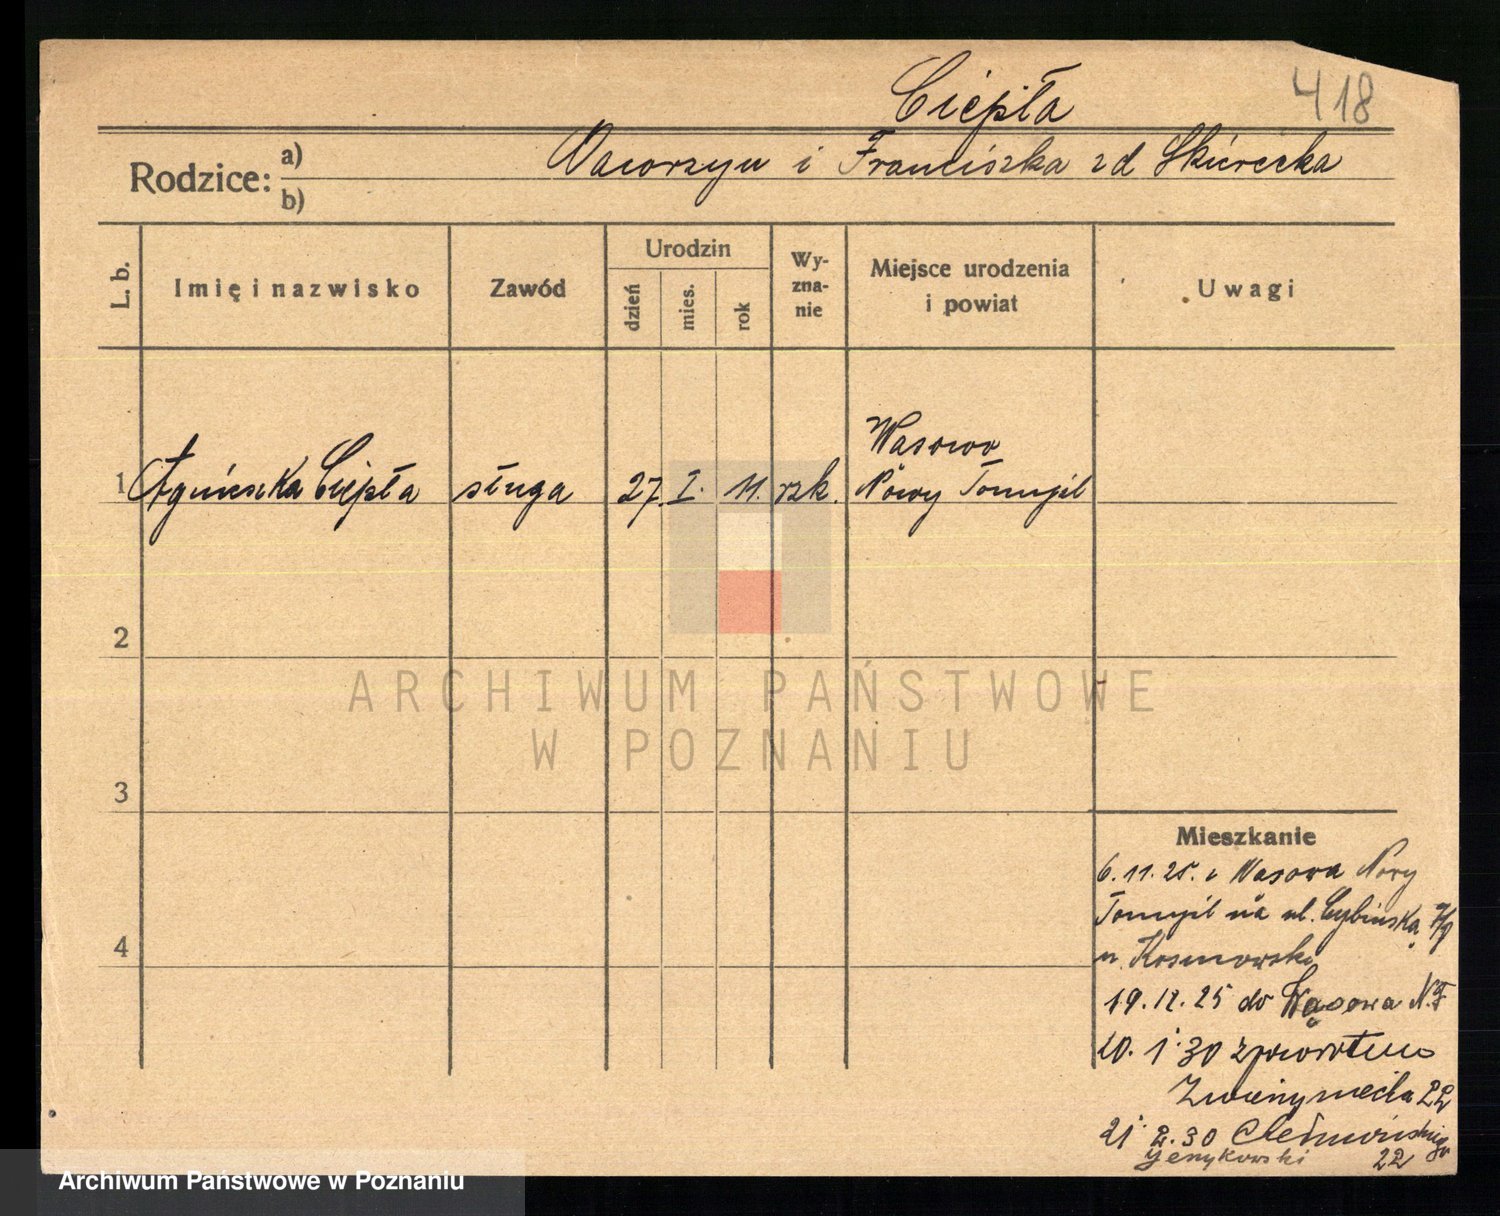 418
Ciepła
Rodzice: a) Wawrzyn i Franciszka zd Skórecka
b)
L. b.
Imię i nazwisko
Zawód
Urodzin
dzień
mies.
rok
Wy-
zna-
nie
Miejsce urodzenia
i powiat
Uwagi
Wasowo
1 Agnieszka Ciepła sługa 27. I. 11. rzk. Nowy Tomyśl
2
3
4
Mieszkanie
6.11.25. z Wasowa Nowy
Tomyśl na ul. Cybińska 7/9
u. Kosmowski
19.12.25 do Wąsowa N.T
20. 1. 30 zpowrotem
Zwierzyniecka 22
21 2.30 Chełmońskiego
22
ARCHIWUM PAŃSTWOWE
W POZNANIU
Archiwum Państwowe w Poznaniu